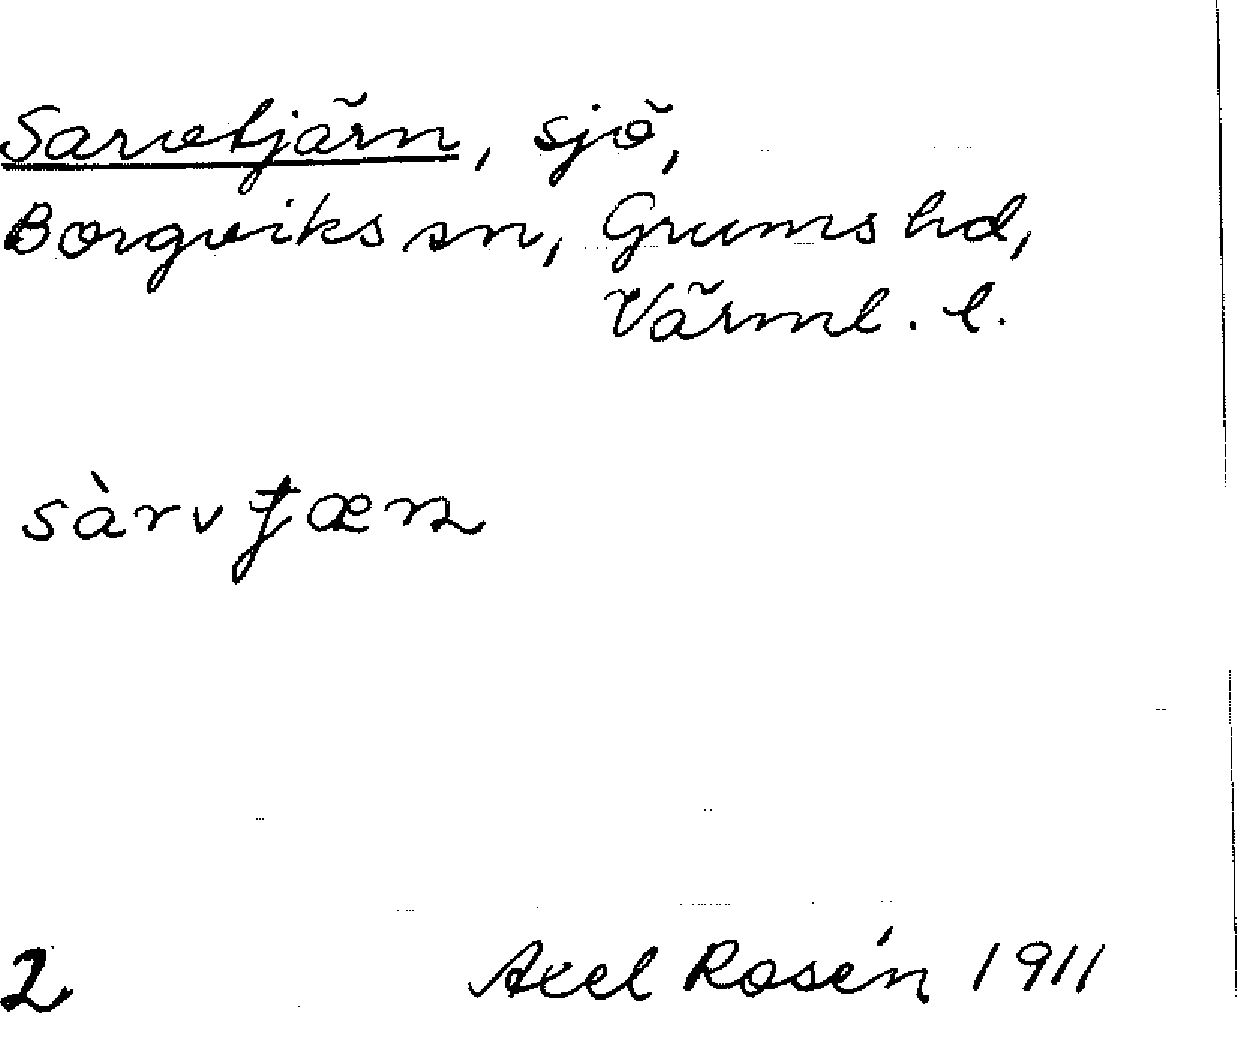 Sarvtjärn, sjö,
Borgviks sn, Grums hd,
Värml. l.
sàrvꞓæɳ
2 Axel Rosén 1911